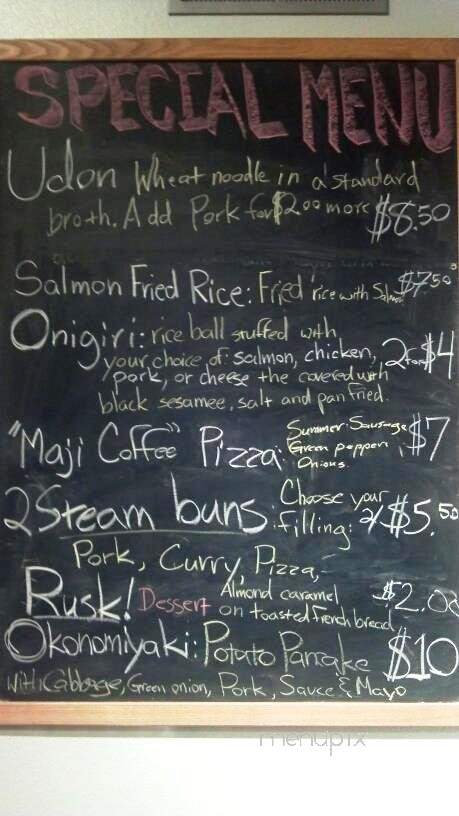 SPECIAL MENU
Udon Wheat noodle in a standard
broth. Add Pork for $2.00 more $8.50
Salmon Fried Rice: Fried rice with Salmon $7.50
Onigiri: rice ball stuffed with
your choice of: salmon, chicken, 2 for $4
pork, or cheese the covered with
black sesamee, salt and pan fried.
"Maji Coffee" Pizza: Summer Sausage $7
Green pepper,
Onions.
2 Steam buns: Choose your
filling: 2/$5.50
Pork, Curry, Pizza,
Rusk! Dessert Almond caramel $2.00
on toasted french bread,
Okonomiyaki: Potato Pancake $10
with Cabbage, Green onion, Pork, Sauce & Mayo
menupix